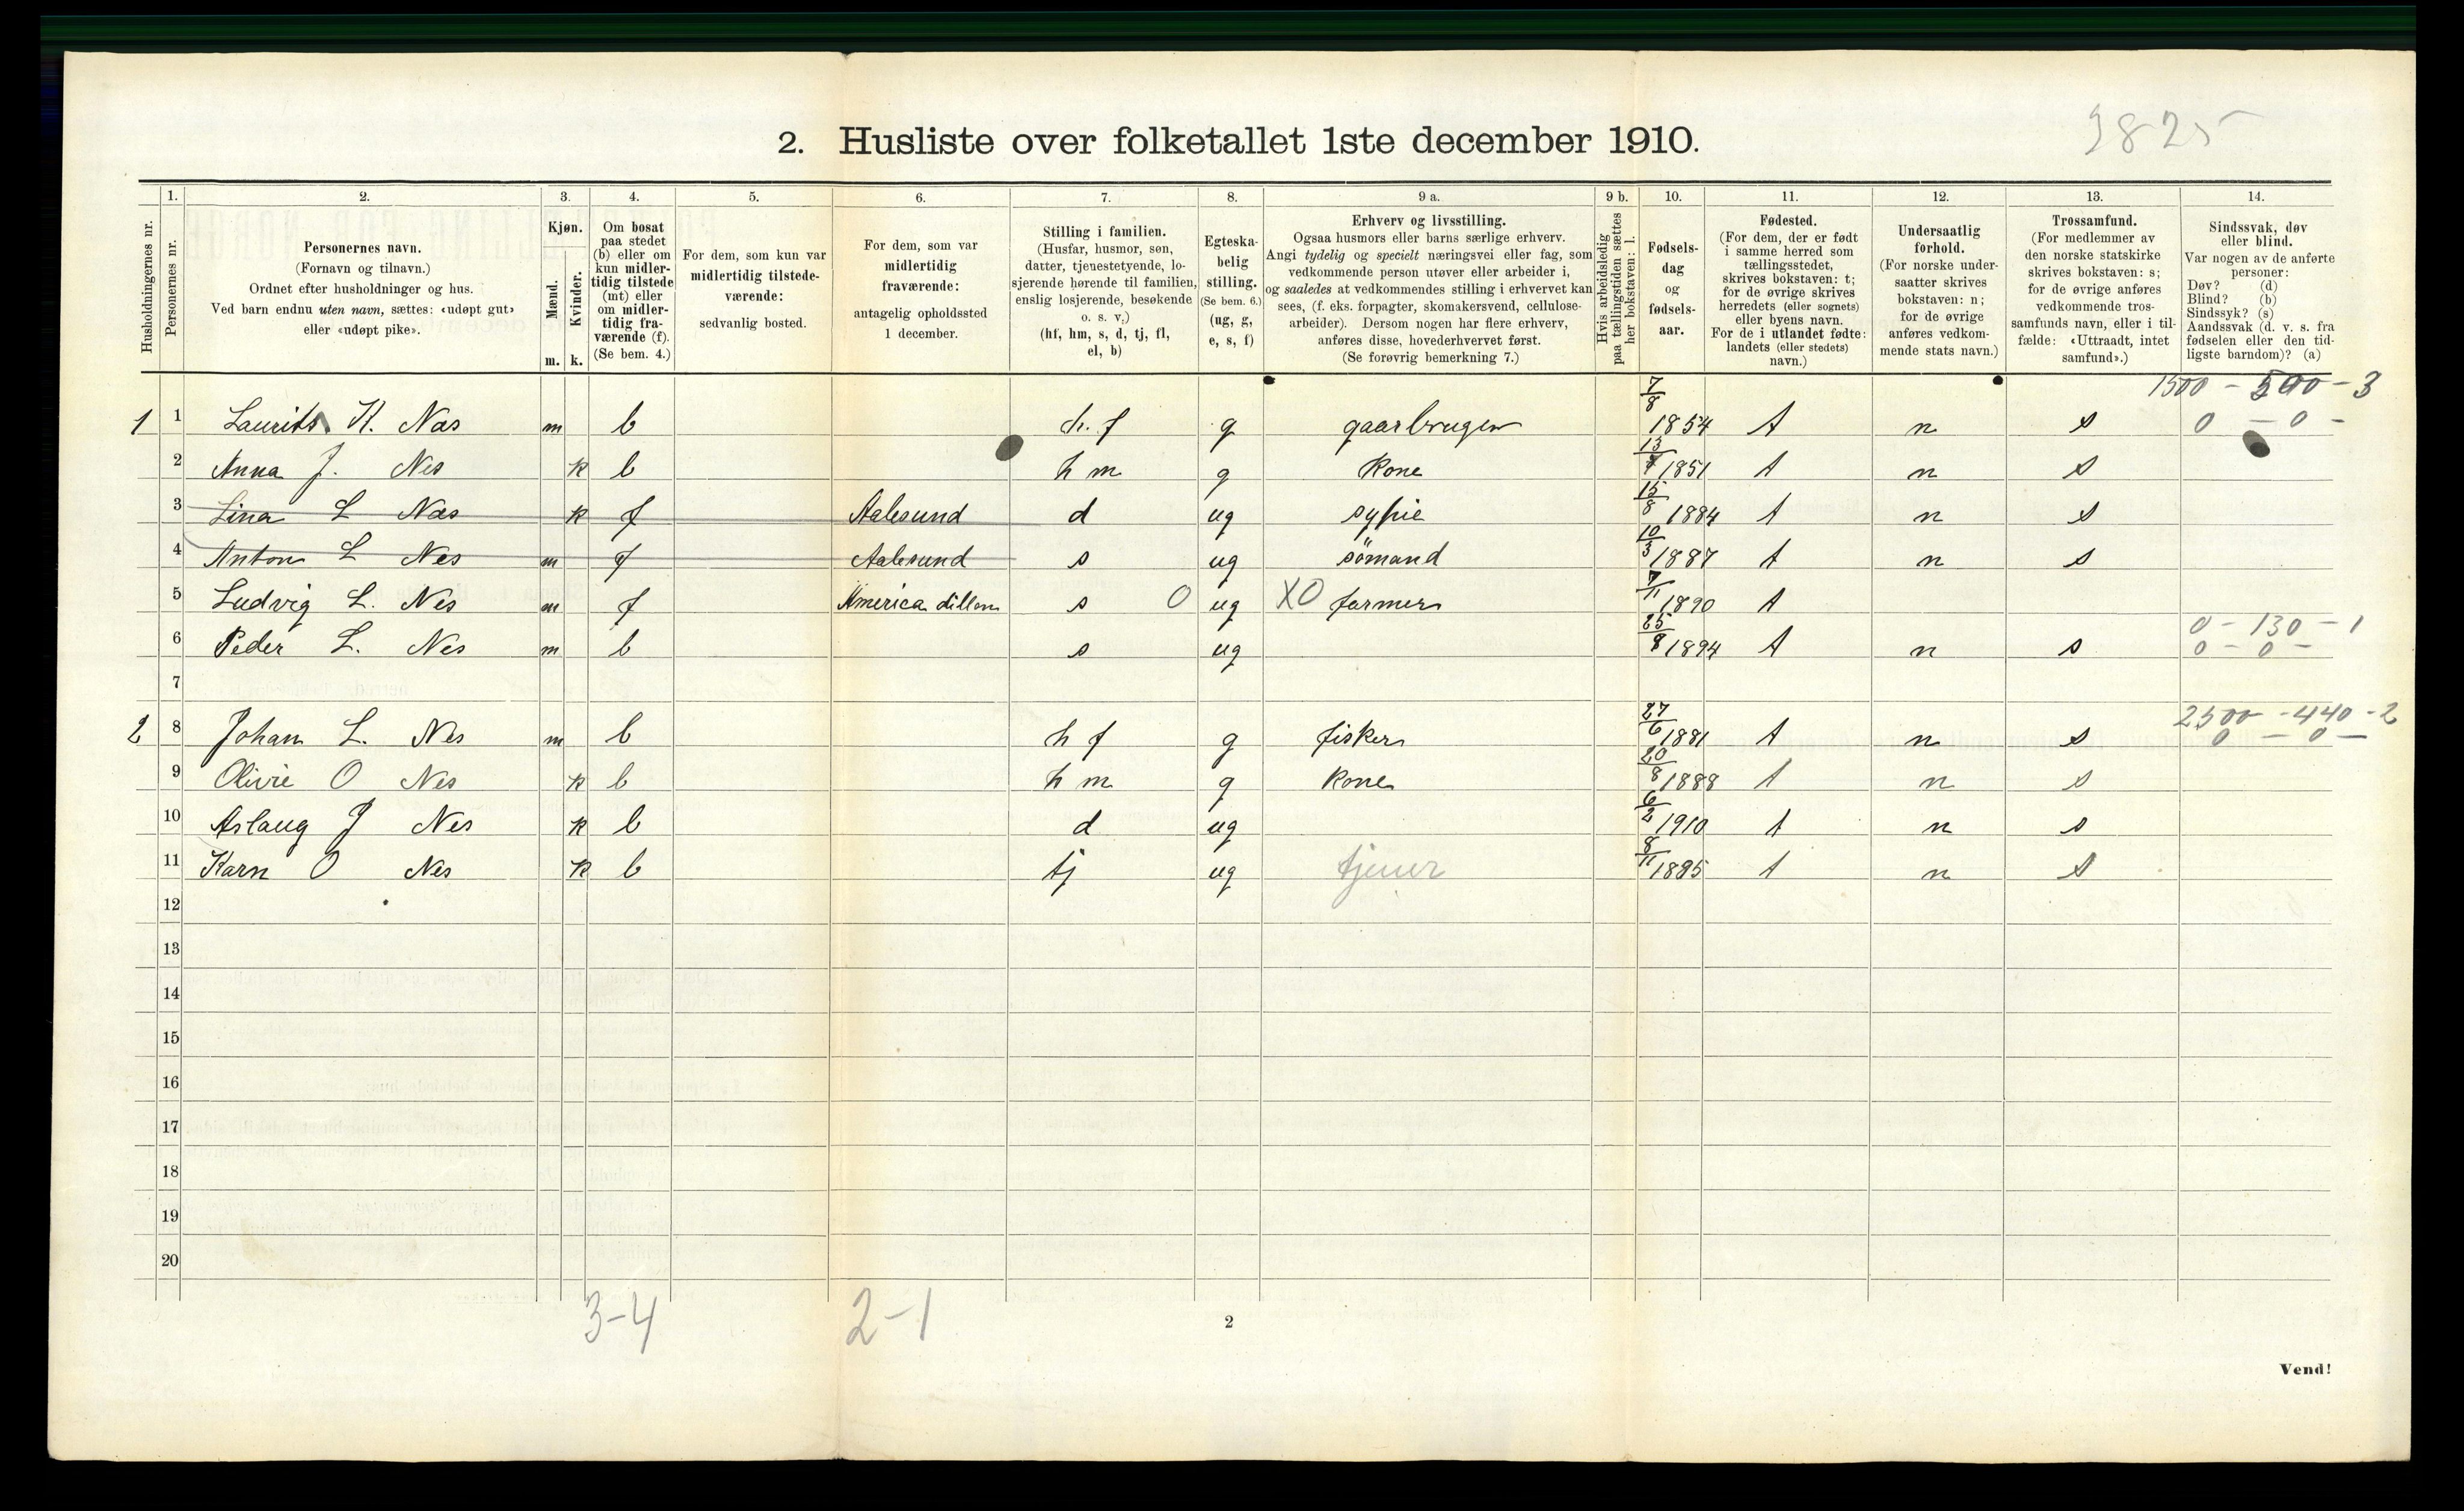 3825
2. Husliste over folketallet 1ste december 1910.
Husholdningernes nr.
1.
Personernes nr.
2.
Personernes navn.
(Fornavn og tilnavn.)
Ordnet efter husholdninger og hus.
Ved barn endnu uten navn, sættes: «udøpt gut»
eller «udøpt pike».
3.
Kjøn.
Mænd.
Kvinder.
m. k.
4.
Om bosat
paa stedet
(b) eller om
kun midler-
tidig tilstede
(mt) eller
om midler-
tidig fra-
værende (f).
(Se bem. 4.)
5.
For dem, som kun var
midlertidig tilstede-
værende:
sedvanlig bosted.
6.
For dem, som var
midlertidig
fraværende:
antagelig opholdssted
1 december.
7.
Stilling i familien.
(Husfar, husmor, søn,
datter, tjenestetyende, lo-
sjerende hørende til familien,
enslig losjerende, besøkende
o. s. v.)
(hf, hm, s, d, tj, fl,
el, b)
8.
Egteska-
belig
stilling.
(Se bem. 6.)
(ug, g,
e, s, f)
9 a.
Erhverv og livsstilling.
Ogsaa husmors eller barns særlige erhverv.
Angi tydelig og specielt næringsvei eller fag, som
vedkommende person utøver eller arbeider i,
og saaledes at vedkommendes stilling i erhvervet kan
sees, (f. eks. forpagter, skomakersvend, cellulose-
arbeider). Dersom nogen har flere erhverv,
anføres disse, hovederhvervet først.
(Se forøvrig bemerkning 7.)
9 b.
Hvis arbeidsledig
paa tællingstiden sættes
her bokstaven: l.
10.
Fødsels-
dag
og
fødsels-
aar.
11.
Fødested.
(For dem, der er født
i samme herred som
tællingsstedet,
skrives bokstaven: t;
for de øvrige skrives
herredets (eller sognets)
eller byens navn.
For de i utlandet fødte:
landets (eller stedets)
navn.)
12.
Undersaatlig
forhold.
(For norske under-
saatter skrives
bokstaven: n;
for de øvrige
anføres vedkom-
mende stats navn.)
13.
Trossamfund.
(For medlemmer av
den norske statskirke
skrives bokstaven: s;
for de øvrige anføres
vedkommende tros-
samfunds navn, eller i til-
fælde: «Uttraadt, intet
samfund».)
14.
Sindssvak, døv
eller blind.
Var nogen av de anførte
personer:
Døv? (d)
Blind? (b)
Sindssyk? (s)
Aandssvak (d. v. s. fra
fødselen eller den tid-
ligste barndom)? (a)
1500 - 500 - 3
1 1 Laurits K. Nas m b h. f g gaarbruger 7/8 1854 t n s 0 - 0 -
2 Anna J. Nes k b h m g Kone 1851 t n s
3 Lina L Nas k f Aalesund d ug sypie 15/8 1884 t n s
4 Anton L Nes m f Aalesund s ug sömand 10/3 1887 t n s
5 Ludvig L. Nes m f America dillon s 0 ug X0 farmer 7/11 1890 t
0 - 130 - 1
6 Peder L. Nes m b s ug 1894 t n s 0 - 0 -
7
2500 - 440 - 2
2 8 Johan L. Nes m b h f g fisker 27/6 1881 t n s 0 - 0 -
9 Olivie O Nes k b h m g Kone 20/8 1888 t n s
10 Aslaug J Nes k b d ug 6/2 1910 t n s
11 Karn O Nes k b tj ug tjener 8/11 1895 t n s
12
13
14
15
16
17
18
19
20
3-4 2-1
2
Vend!